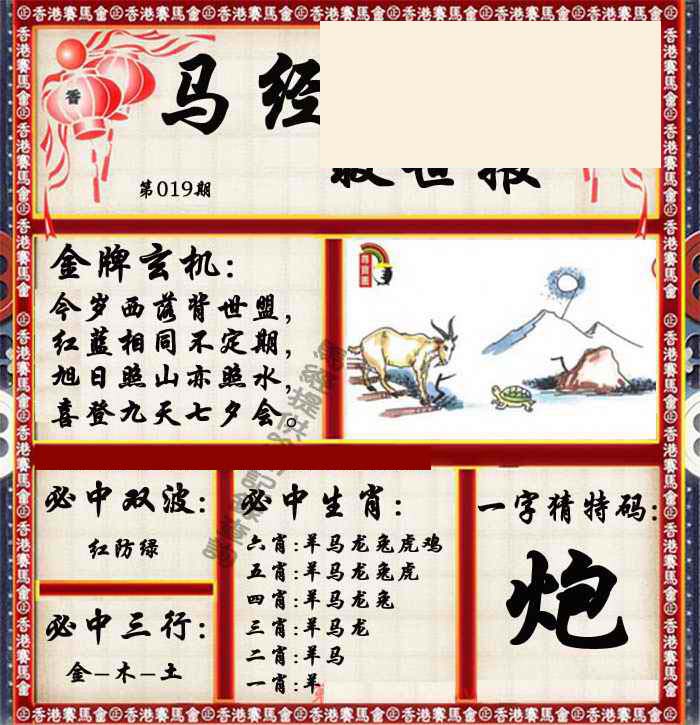 香港賽馬會
香
马经
救世报
第019期
金牌玄机:
今岁西落背世盟,
红蓝相同不定期,
旭日照山亦照水,
喜登九天七夕会。
必中双波:
红防绿
必中三行:
金-木-土
必中生肖:
六肖:羊马龙兔虎鸡
五肖:羊马龙兔虎
四肖:羊马龙兔
三肖:羊马龙
二肖:羊马
一肖:羊
一字猜特码:
炮